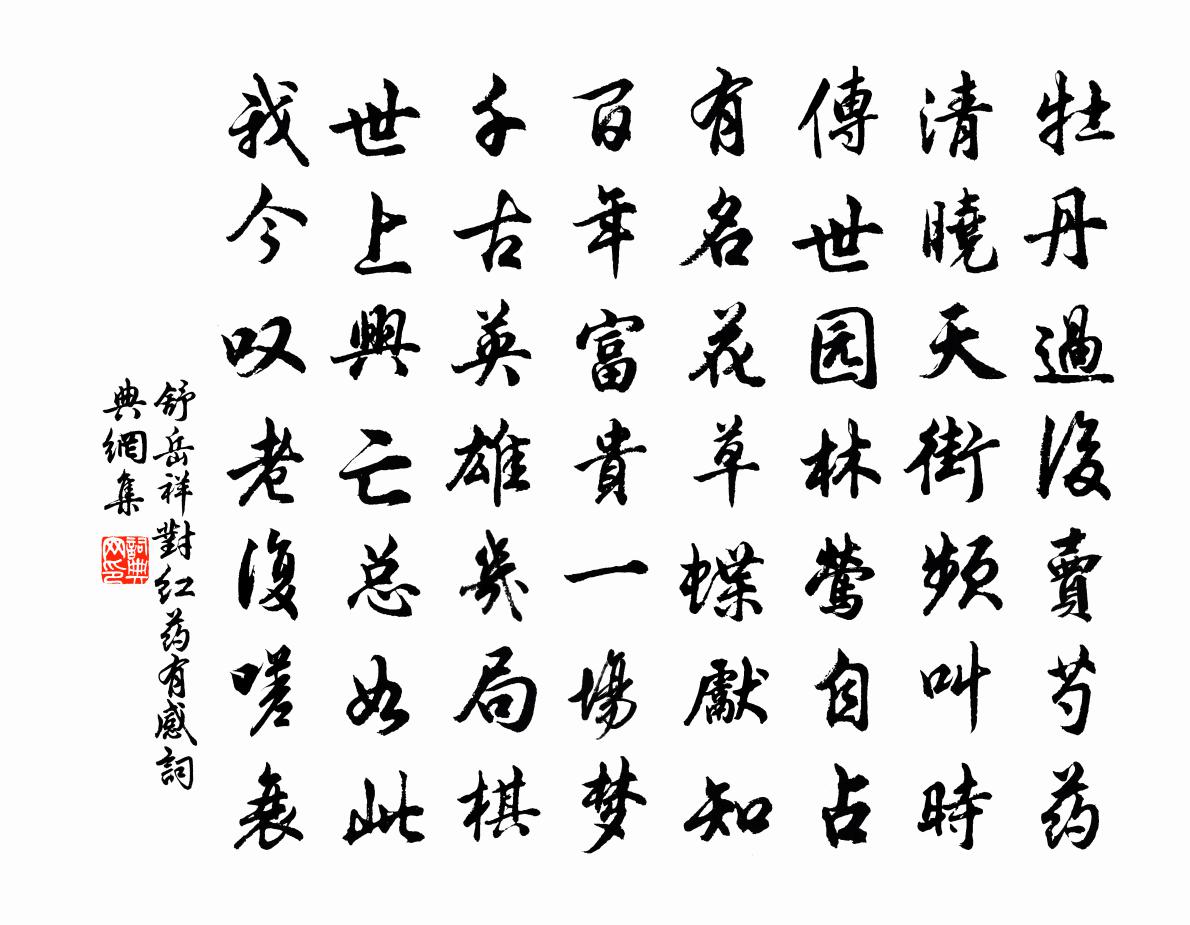 牡丹過後賣芍药
清曉天街頻叫時
傳世园林鶯自占
有名花草蝶獻知
百年富貴一場梦
千古英雄幾局棋
世上興亡总如此
我今叹老復嗟衰
舒岳祥對红药有感詞
典網集
詞典網印